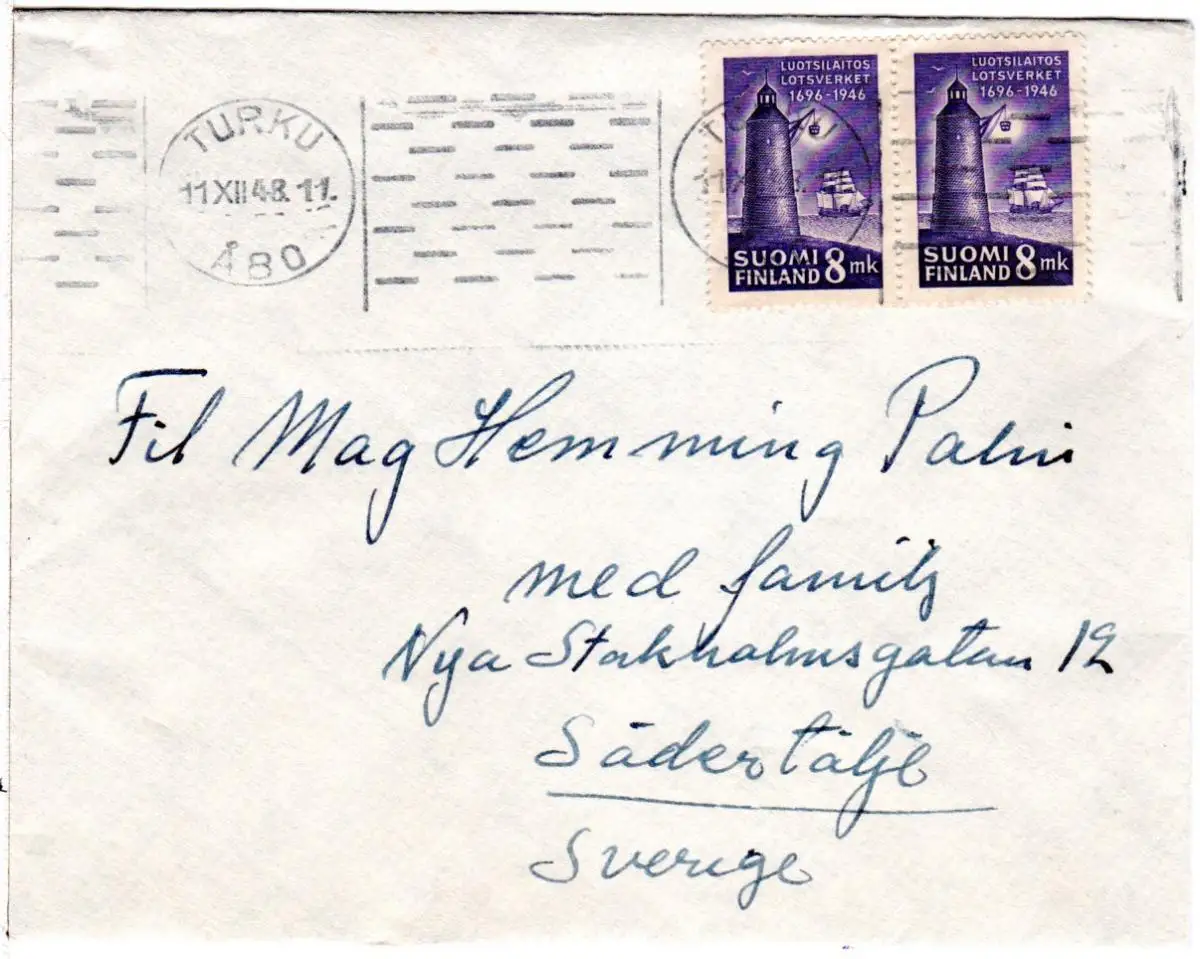 TURKU
11 XII 48. 11.
ÅBO
LUOTSILAITOS
LOTSVERKET
1696-1946
SUOMI
FINLAND 8 mk
LUOTSILAITOS
LOTSVERKET
1696-1946
SUOMI
FINLAND 8 mk
Fil Mag Hemming
med familj
Nya Stockholmsgatan 12
Södertälje
Sverige